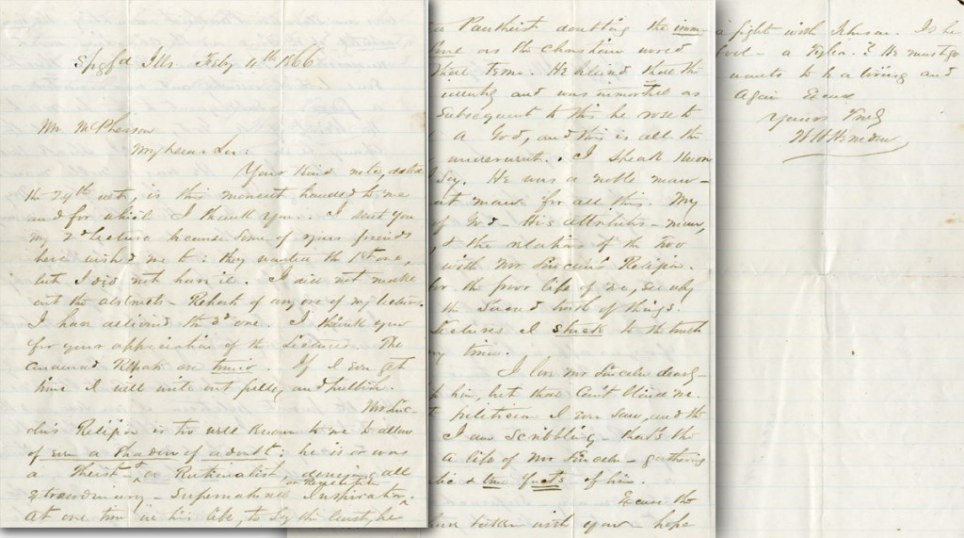 Spgfd Ills. Feby 4th 1866
Mr McPherson
My Dear Sir:
Your kind note, dated
the 29th ult, is this moment handed to me
and for which I thank you. I sent you
my 2d Lecture because some of your friends
here wished me to: they wanted the 1st one,
but I did not have it. I did not make
out the abstracts - Report of any one of my lectures
I have delivered the 3d one. I thank you
for your appreciation of the Lectures. The
Reports are
time I will write out fully, and publish.
Mr Lin-
coln's Religion is too well known to me to allow
of even a shadow of a doubt: he is or was
a Theist & a Rationalist, denying all
extraordinary - Supernatural Inspiration or revelation.
At one time in his life, to say the least, he
Pantheist doubting the imm-
as the Christian world
that term. He that the
and was immortal as
Subsequent to this he rose to
a God, and this is all the
I speak
He was a noble man -
man for all this. My
of God - His attributes - man,
& the relations of the two
with Mr Lincoln's Religion.
the poor life of me, see why
the and truth of things.
Lectures I stuck to the truth
time.
I love Mr Lincoln dearly -
him, but that don't blind me.
politician I am sure, and the
I am scribbling - that's the
a life of Mr Lincoln - gathering
& true facts of him.
Excuse the
taken with you - hope
a fight with Johnson. Is he
a Tyler? He must go
wants to be a living and
Again Excuse
Yours Truly
W H Herndon